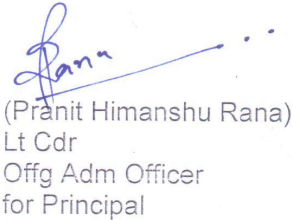 Rana
(Pranit Himanshu Rana)
Lt Cdr
Offg Adm Officer
for Principal